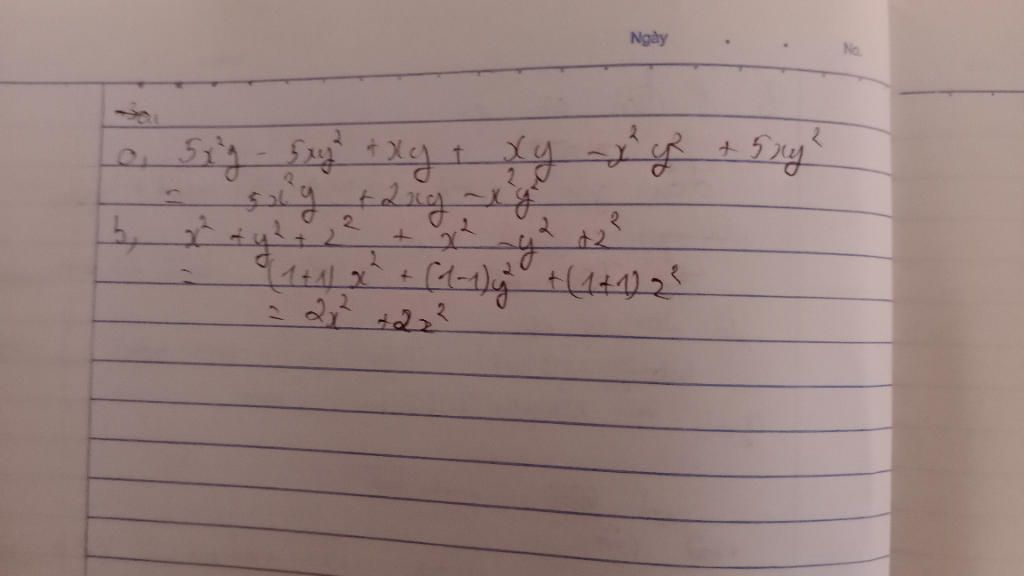 Ngày
No.
a, 5x²y - 5xy² + xy + xy - x²y² + 5xy²
= 5x²y + 2xy - x²y²
b, x² + y² + z² + x² - y² + z²
= (1+1) x² + (1-1)y² + (1+1) z²
= 2x² + 2z²